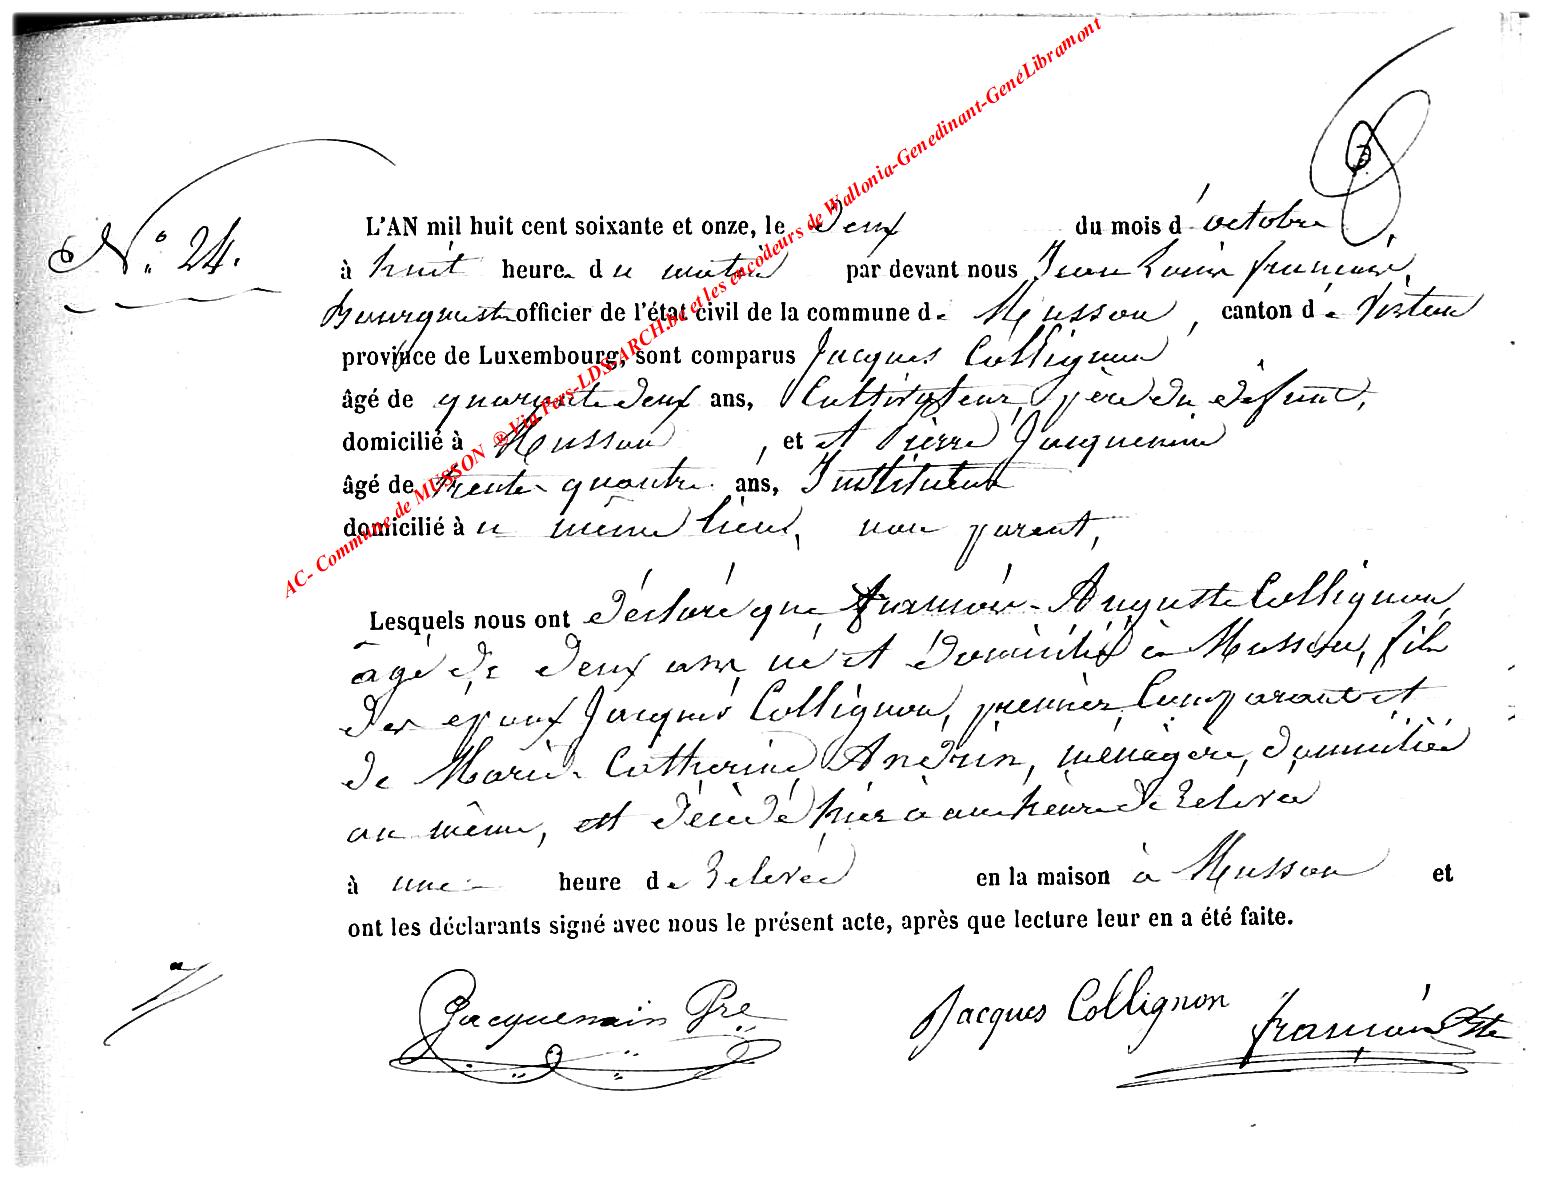 AC- Commune de MUSSON ® Via Pers-LDS-ARCH.be et les encodeurs de Wallonia-Genedinant-GenéLibramont
N.° 24.
L'AN mil huit cent soixante et onze, le deux du mois d'octobre
à huit heure du matin par devant nous Jean Louis françois,
officier de l'état civil de la commune de Musson, canton de Virton
province de Luxembourg, sont comparus Jacques Collignon
âgé de quarante deux ans, Cultivateur, père du défunt,
domicilié à Musson, et et Pierre Jacquemin
âgé de trente quatre ans, Instituteur
domicilié à u même lieu, non parent,
Lesquels nous ont déclaré que françois-Auguste Collignon,
âgé de deux ans, né et domicilié à Musson, fils
des époux Jacques Collignon, premier Comparant et
de Marie-Catherine Andrin, ménagère, domiciliée
au même, est décédé hier à une heure de relevée
à une heure de relevée en la maison à Musson et
ont les déclarants signé avec nous le présent acte, après que lecture leur en a été faite.
Jacquemin Pre Jacques Collignon françois